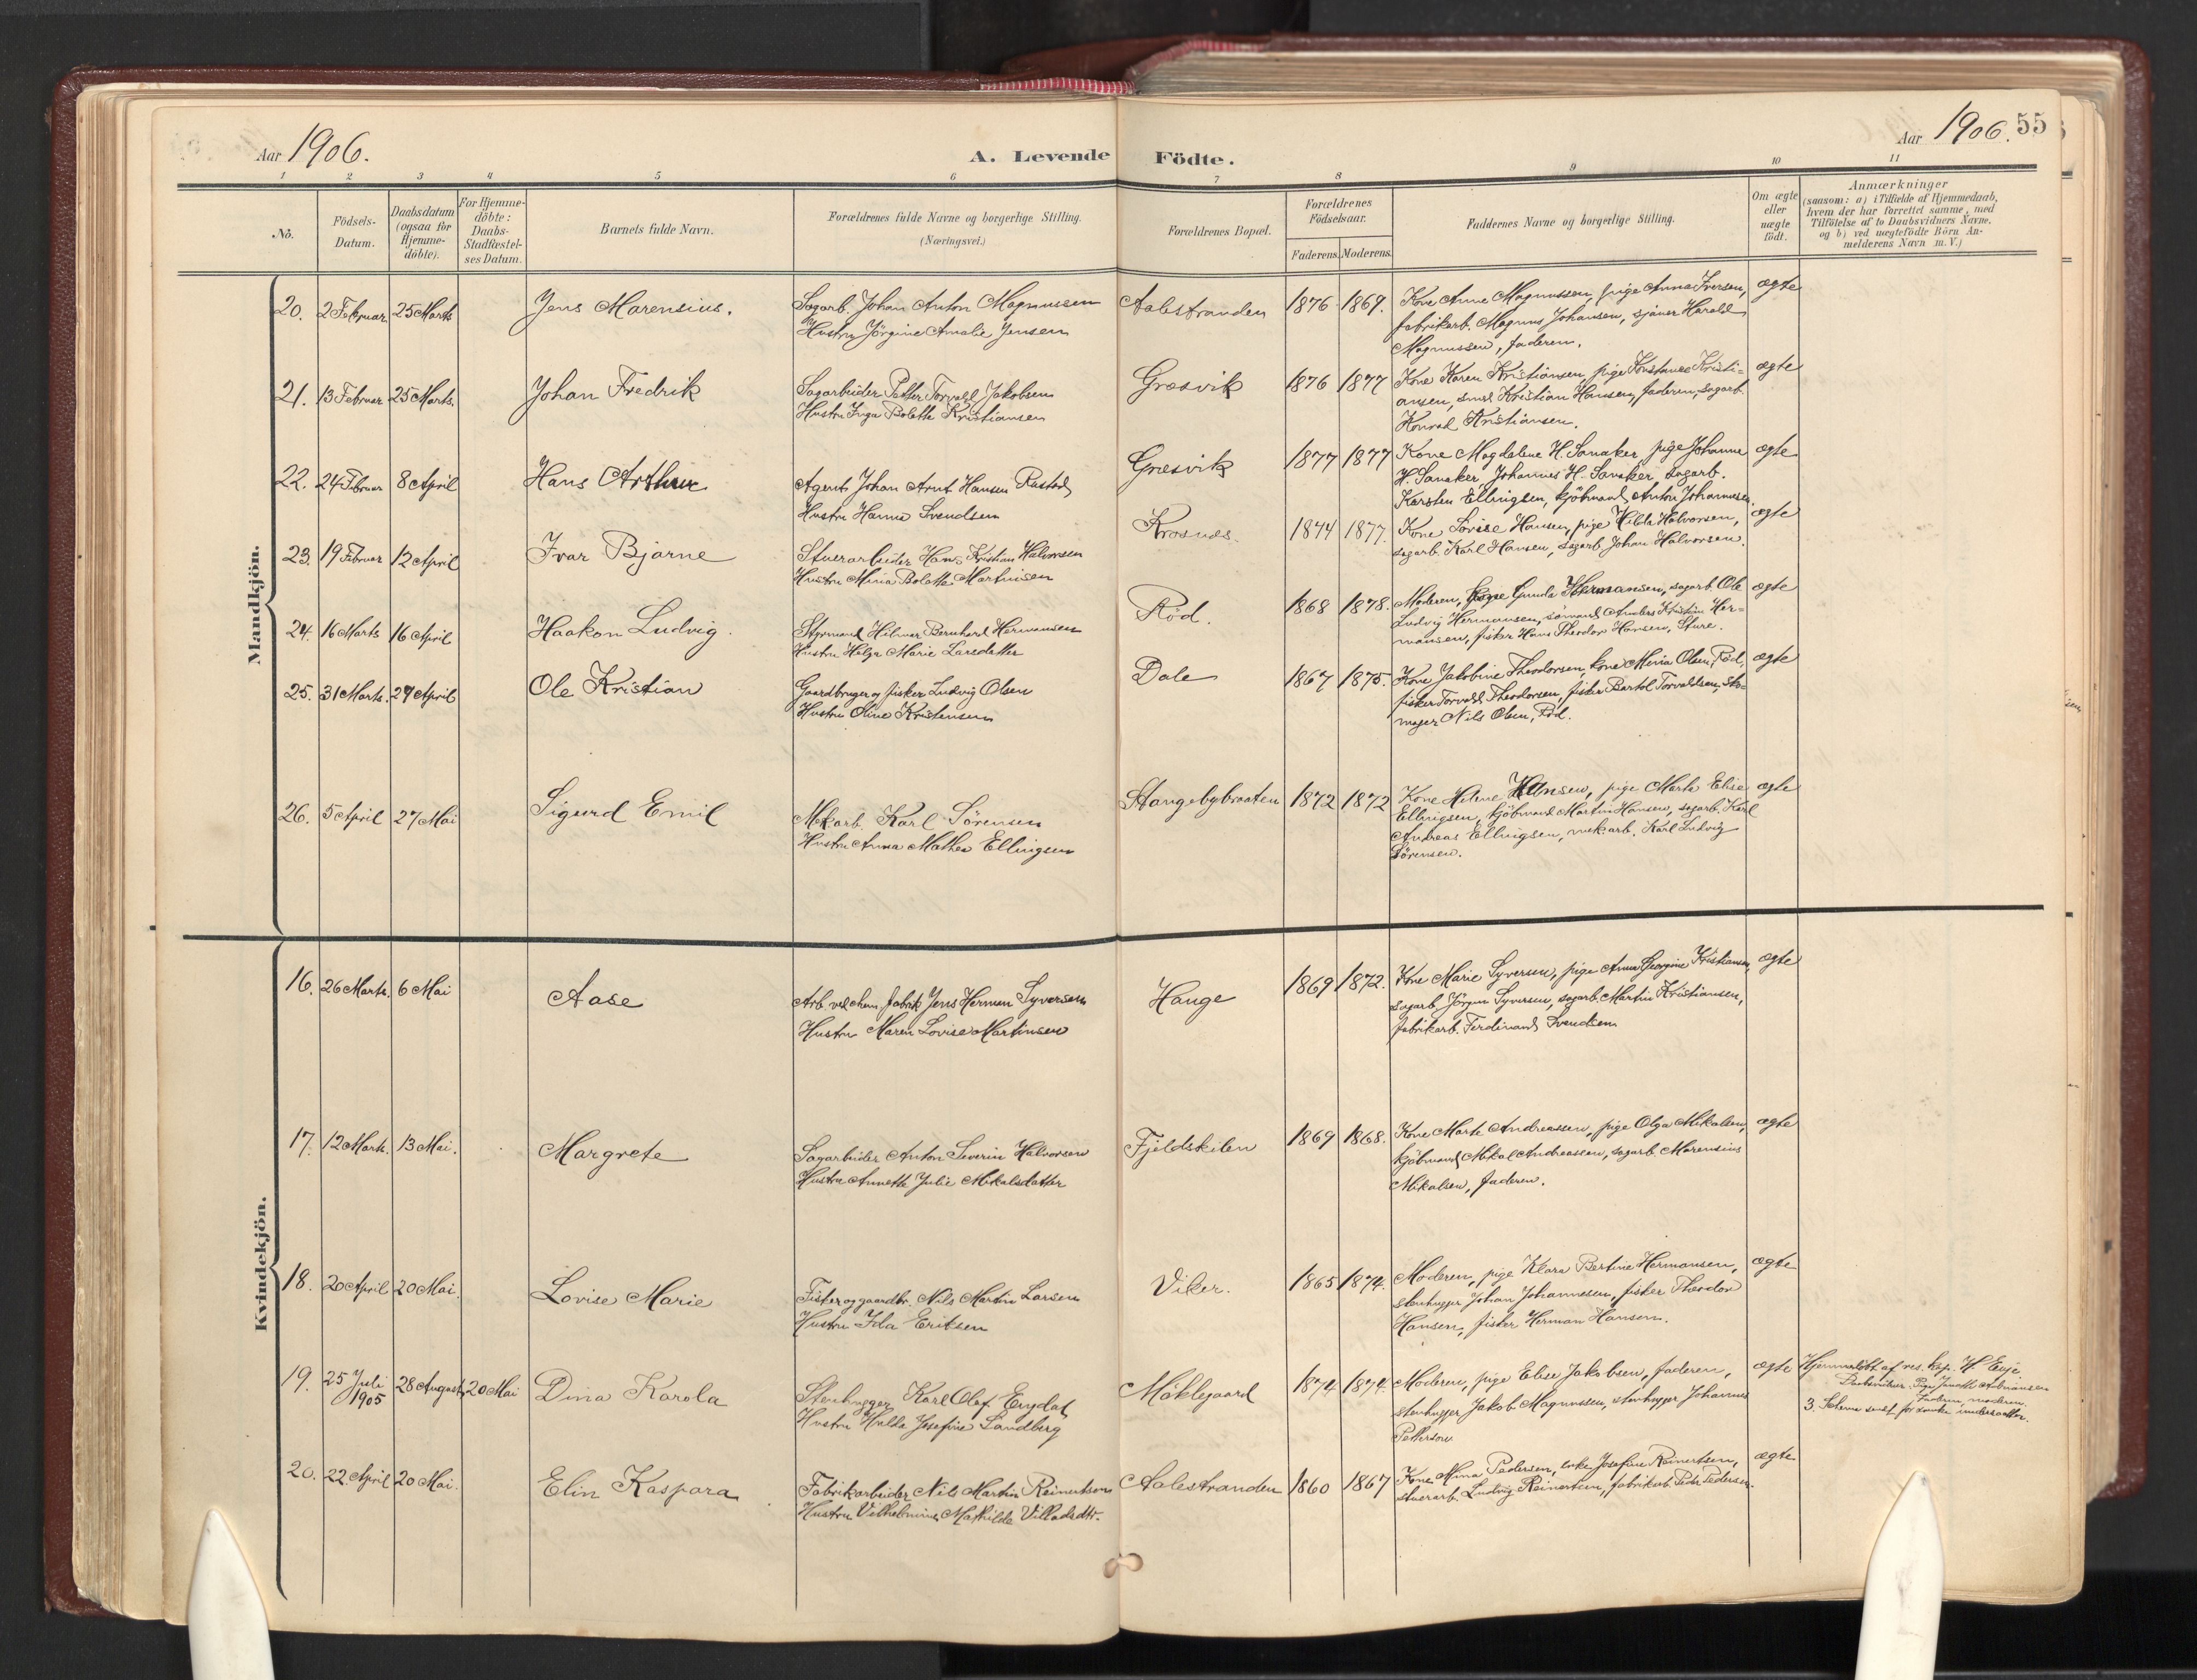 Aar 1906.
A. Levende Födte.
Aar 1906. 55
1 2 3 4 5 6 7 8 9 10 11
No.
Födsels-
Datum.
Daabsdatum
(ogsaa for
Hjemme-
döbte).
For Hjemme-
döbte:
Daabs-
Stadfæstel-
ses Datum.
Barnets fulde Navn.
Forældrenes fulde Navne og borgerlige Stilling.
(Næringsvei.)
Forældrenes Bopæl.
Forældrenes
Födselsaar.
Faderens. Moderens.
Faddernes Navne og borgerlige Stilling.
Om ægte
eller
uægte
födt.
Anmærkninger
(saasom: a) i Tilfælde af Hjemmedaab,
hvem der har forrettet samme, med
Tilföielse af to Daabsvidners Navne.
og b) ved uægtefödte Börn An-
melderens Navn m. V.)
Mandkjön.
20. 2 Februar 25 Marts Jens Marensius. Sagarb. Johan Anton Magnussen
Hustru Jörgine Amalie Jensen
Aalestranden 1876 1869. Kone Anne Magnussen, pige Anna Iversen,
fabrikarb. Magnus Johansen, sjauer Harald
Magnussen, faderen.
ægte
21. 13 Februar 25 Marts. Johan Fredrik Sagarbeider Petter Torvald Jakobsen
Hustru Inga Bolette Kristiansen
Græsvik 1876 1877 Kone Karen Kristiansen, pige Konstance Kristi-
ansen, smed Kristian Hansen, faderen, sagarb.
Konrad Kristiansen.
ægte
22. 24 Februar 8 April Hans Arthur Agent Johan Arnt Hansen Rastad
Hustru Hanna Svendsen
Græsvik 1877 1877 Kone Magdalene H. Sanaker pige Johanne
H. Sanaker, Johannes H. Sanaker, sagarb.
Karsten Ellingsen, kjöbmand Anton Johannesen.
ægte
23. 19 Februar 12 April Ivar Bjarne Stuerarbeider Hans Kristian Halvorsen
Hustru Mina Bolette Martinisen
Krosnes. 1874 1877. Kone Lovise Hansen, pige Hilda Halvorsen,
sagarb. Karl Hansen, sagarb. Johan Halvorsen.
ægte
24. 16 Marts 16 April Haakon Ludvig. Styrmand Hilmar Bernhard Hermansen
Hustru Helga Marie Larsdatter
Röd. 1868 1878. Moderen, pige Gunda Hermansen, sagarb. Ole
Ludvig Hermansen, sömand Anders Kristian Her-
mansen, fisker Hans Theodor Hansen, Sture.
ægte
25. 31 Marts. 29 April Ole Kristian Gaardbruger og fisker Ludvig Olsen
Hustru Oline Kristensen
Dale 1867 1875. Kone Jakobine Theodorsen, kone Mina Olsen, Röd,
fisker Torvald Theodorsen, fisker Bertol Torvaldsen, sko-
mager Nils Olsen, Röd.
ægte
26. 5 April 27 Mai Sigurd Emil Mek.arb. Karl Sörensen
Hustru Anna Mathea Ellingsen
Stangebybraaten 1872 1872 Kone Helene Hansen, pige Marte Elise
Ellingsen, kjöbmand Martin Hansen, sagarb. Karl
Andreas Ellingsen, mek.arb. Karl Ludvig
Sörensen.
ægte
Kvindekjön.
16. 26 Marts. 6 Mai Aase Arb. ved chem. fabrik Jens Herman Syversen
Hustru Maren Lovise Martinsen
Hauge 1869 1872. Kone Marie Syversen, pige Anna Georgine Kristiansen,
sagarb. Jörgen Syversen, sagarb. Martin Kristiansen,
fabrikarb. Ferdinand Svendsen
ægte
17. 12 Marts. 13 Mai. Margrete Sagarbeider Anton Severin Halvorsen
Hustru Annette Julie Mikalsdatter
Fjeldskilen 1869 1868. Kone Marte Andreassen, pige Olga Mikalsen,
kjöbmand Mikal Andreassen, sagarb. Marensius
Mikalsen, faderen.
ægte
18. 20 April 20 Mai. Lovise Marie Fisker og gaardbr. Nils Martin Larsen
Hustru Ida Eriksen
Viker. 1865 1874. Moderen, pige Klara Bertine Hermansen,
stenhugger Johan Johannesen, fisker Theodor
Hansen, fisker Herman Hansen.
ægte
19. 25 Juli 1905 28 August 20 Mai Dina Karola Stenhugger Karl Olof Engdal
Hustru Hulda Josefine Sandberg
Möklegaard 1874 1874. Moderen, pige Elise Jakobsen, faderen,
stenhugger Jakob Magnussen, stenhugger Johannes
Petterson
ægte Hjemmedöbt af res. kap. H. Evje
Daabsvidner: Pige
Faderen, moderen.
3. Schema sendt for svenske undersaatter.
20. 22 April 20 Mai. Elin Kaspara Fabrikarbeider Nils Martin Reinertsen
Hustru Vilhelmine Mathilde Villadsdtr.
Aalestranden 1860 1867 Kone Mina Pedersen, enke Josefine Reinertsen,
stuerarb. Ludvig Reinertsen, fabrikarb. Peder Pedersen.
ægte